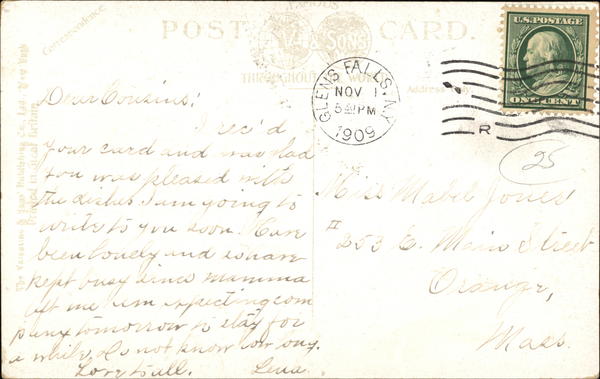 Correspondence.
POST CARD.
FAMOUS
& SONS
THROUGHOUT THE WORLD
Address Only.
The Valentine & Sons Publishing Co., Ltd., New York
Printed in Great Britain.
U.S. POSTAGE
ONE CENT
GLENS FALLS, N.Y.
NOV 1
5 PM
1909
R
25
Dear Cousins:
I rec'd
your card and was glad
you was pleased with
the dishes. I am going to
write to you soon. Have
been lonely and I have
kept busy since mamma
left me. am expecting com
pany tomorrow to stay for
a while, do not know how long.
Love to all. Lena.
Miss Mabel Jones
# 253 E. Main Street
Orange,
Mass.